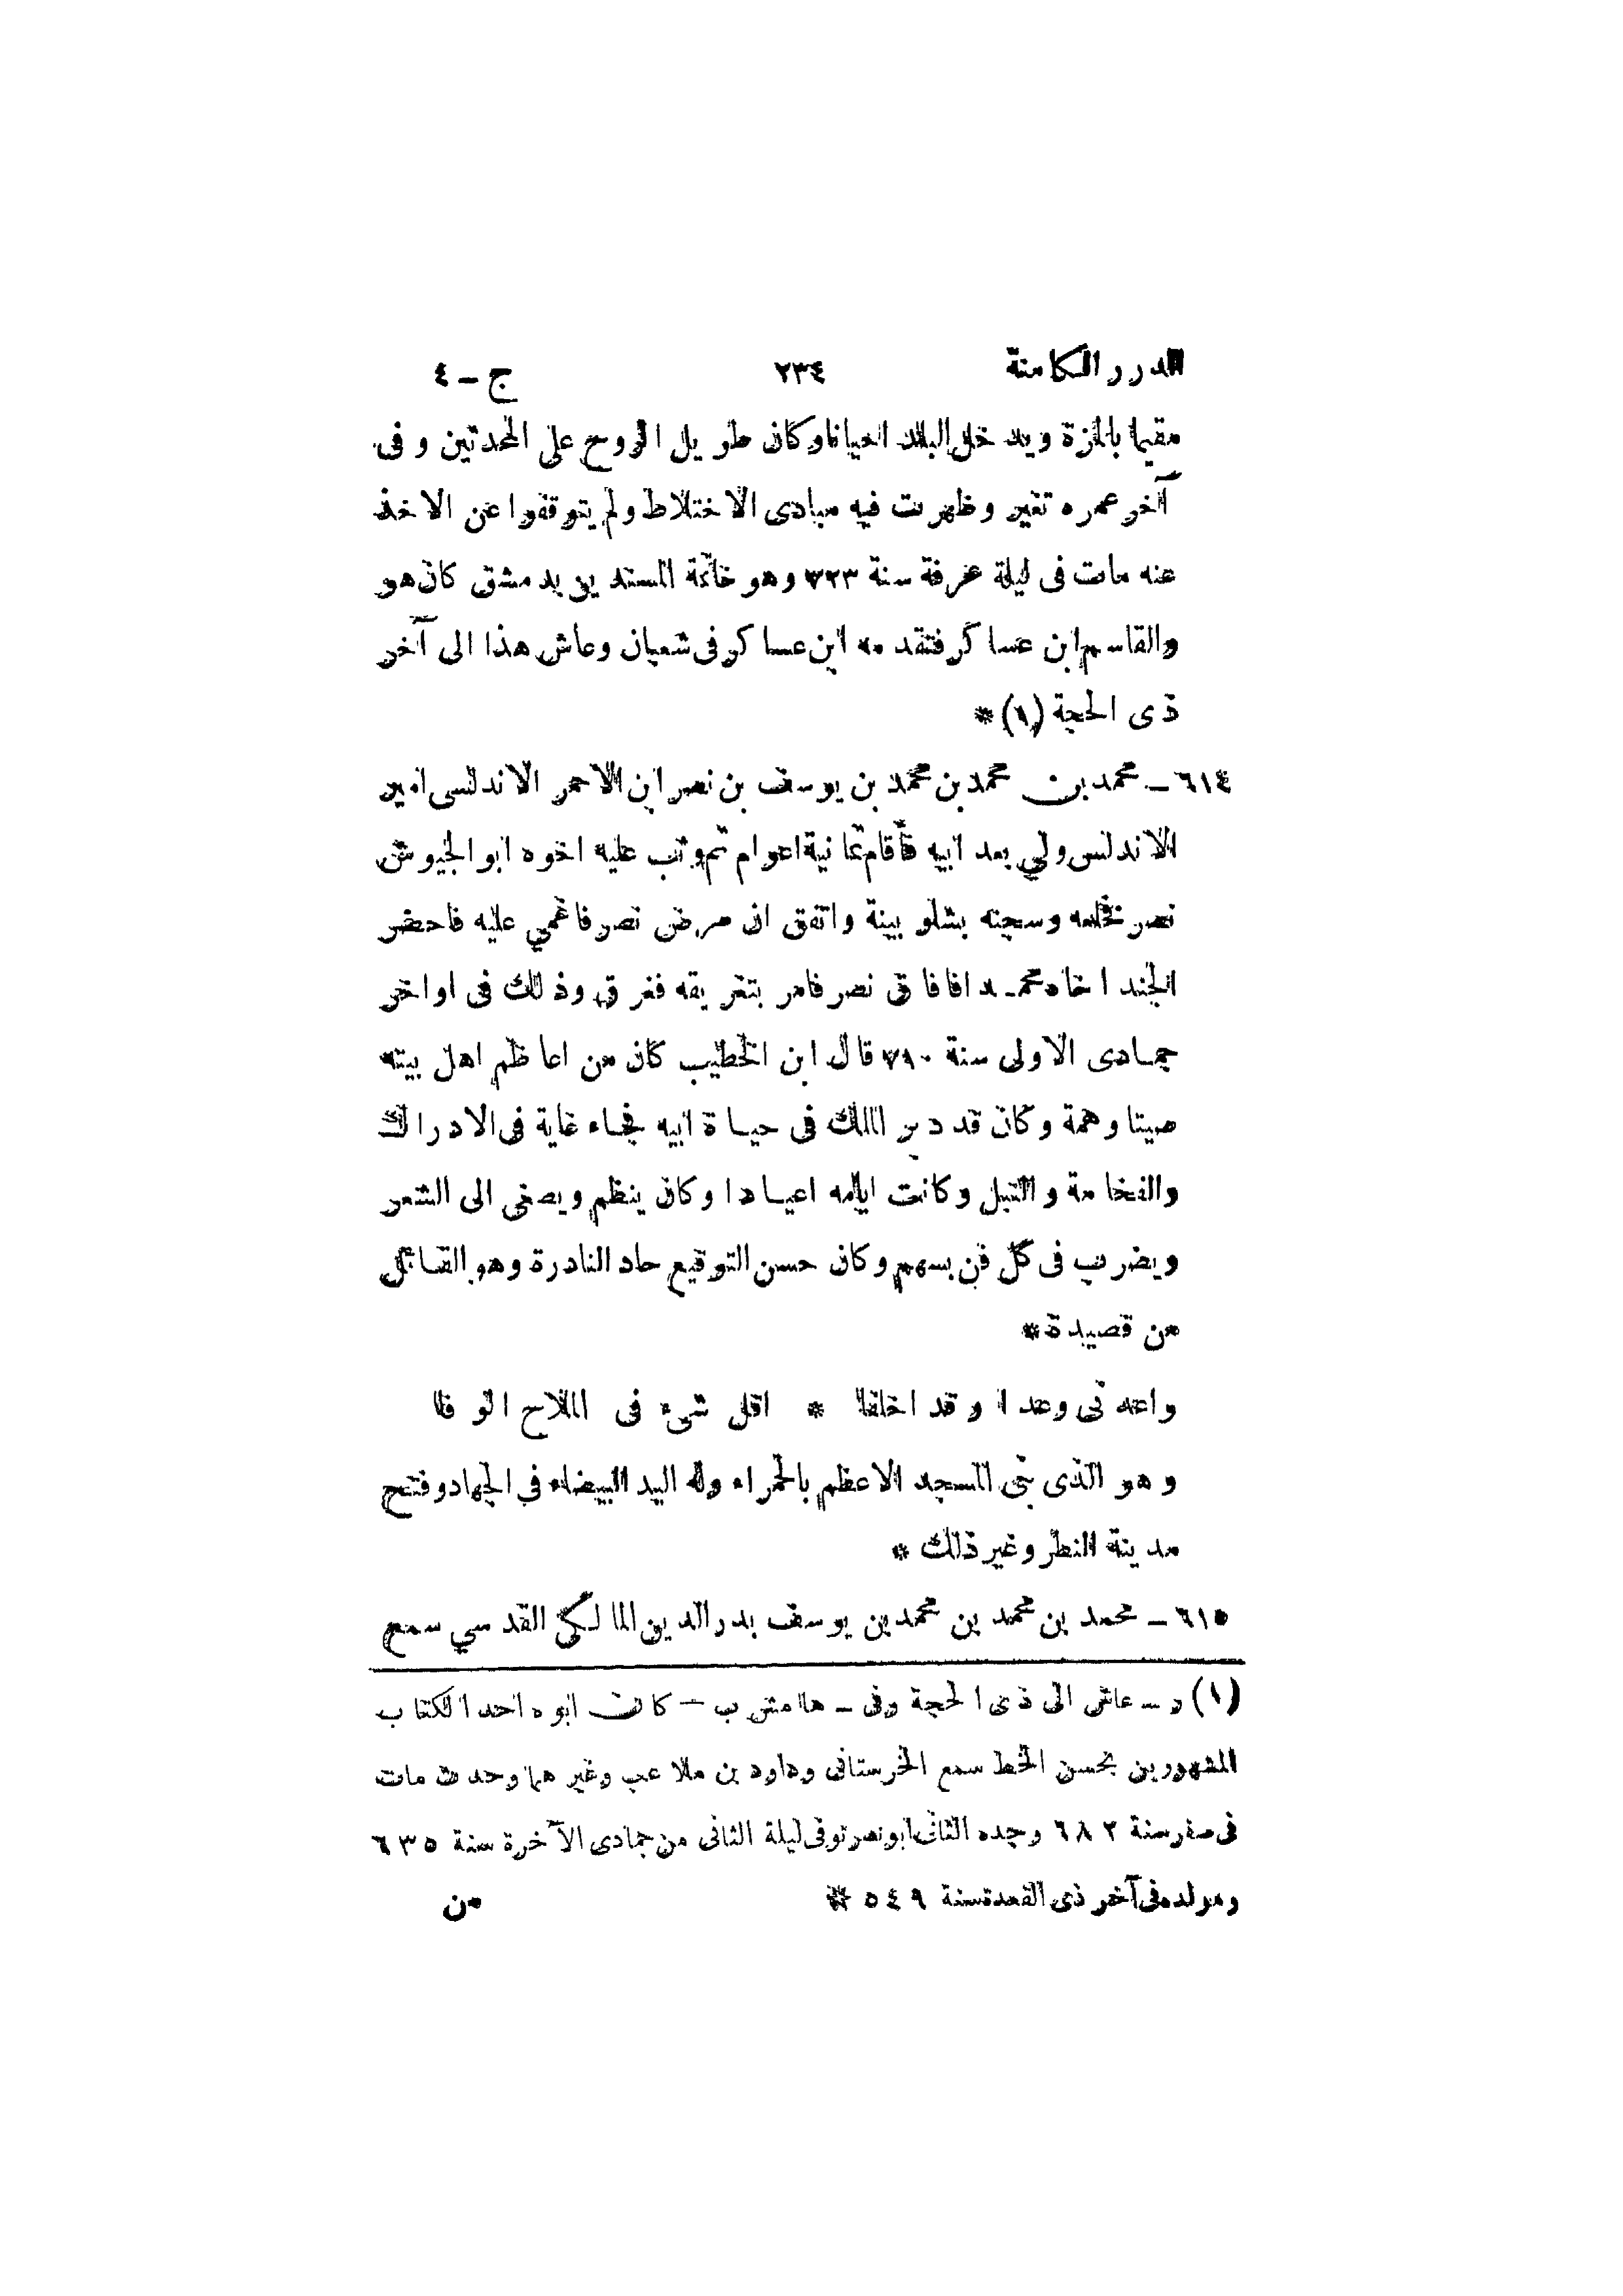 الدرر الكامنة ٢٣٤ ج - ٤
مقيما بالمزة ويدخل البلد احيانا وكان طويل الروح على المحدثين وفى
آخر عمره تغير وظهرت فيه مبادى الاختلاط ولم يتوقفوا عن الاخذ
عنه مات فى ليلة عرفة سنة ٧٢٣ وهو خاتمة المسندين بدمشق كان هو
والقاسم ابن عساكر فتقدمه ابن عساكر فى شعبان وعاش هذا الى آخر
ذى الحجة (١) *
٦١٤ - محمد بن محمد بن محمد بن يوسف بن نصر ابن الاحمر الاندلسى امير
الاندلس ولي بعد ابيه فأقام ثمانية اعوام ثم وثب عليه اخوه ابو الجيوش
نصر فخلعه وسجنه بشلوبينة واتفق ان مرض نصر فاغمي عليه فاحضر
الجند اخاه محمدا فافاق نصر فامر بتغريقه فغرق وذلك فى اواخر
جمادى الاولى سنة ٧١٠ قال ابن الخطيب كان من اعاظم اهل بيته
صيتا وهمة وكان قد دبر الملك فى حياة ابيه فجاء غاية فى الادراك
والفخامة والنبل وكانت ايامه اعيادا وكان ينظم ويصغى الى الشعر
ويضرب فى كل فن بسهم وكان حسن التوقيع حاد النادرة وهو القائل
من قصيدة *
واعدنى وعدا وقد اخلفا * اقل شىء فى الملاح الوفا
وهو الذى بنى المسجد الاعظم بالحمراء وله اليد البيضاء في الجهاد وفتح
مدينة النظر وغير ذلك *
٦١٥ - محمد بن محمد بن محمد بن يوسف بدر الدين المالكى القدسي سمع
(١) ر - عاش الى ذى الحجة وفى - هامش ب - كانت ابوه احد الكتاب
المشهورين بحسن الخط سمع الخرستانى وداود بن ملاعب وغيرهما وحدث مات
فى صفر سنة ٦٨٢ وجده الثانى ابو نصر توفى ليلة الثانى من جمادى الآخرة سنة ٦٣٥
ومولده فى آخر ذى القعدة سنة ٥٤٩ * من